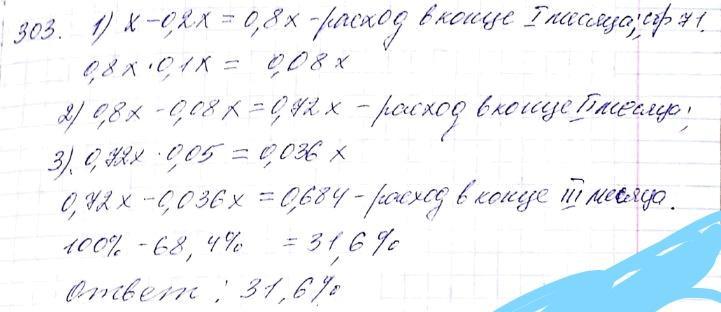 303. 1) x - 0,2x = 0,8x - расход в конце I месяца; стр 71.
0,8x · 0,1x = 0,08x
2) 0,8x - 0,08x = 0,72x - расход в конце II месяца;
3). 0,72x · 0,05 = 0,036x
0,72x - 0,036x = 0,684 - расход в конце III месяца.
100% - 68,4% = 31,6%
Ответ: 31,6%